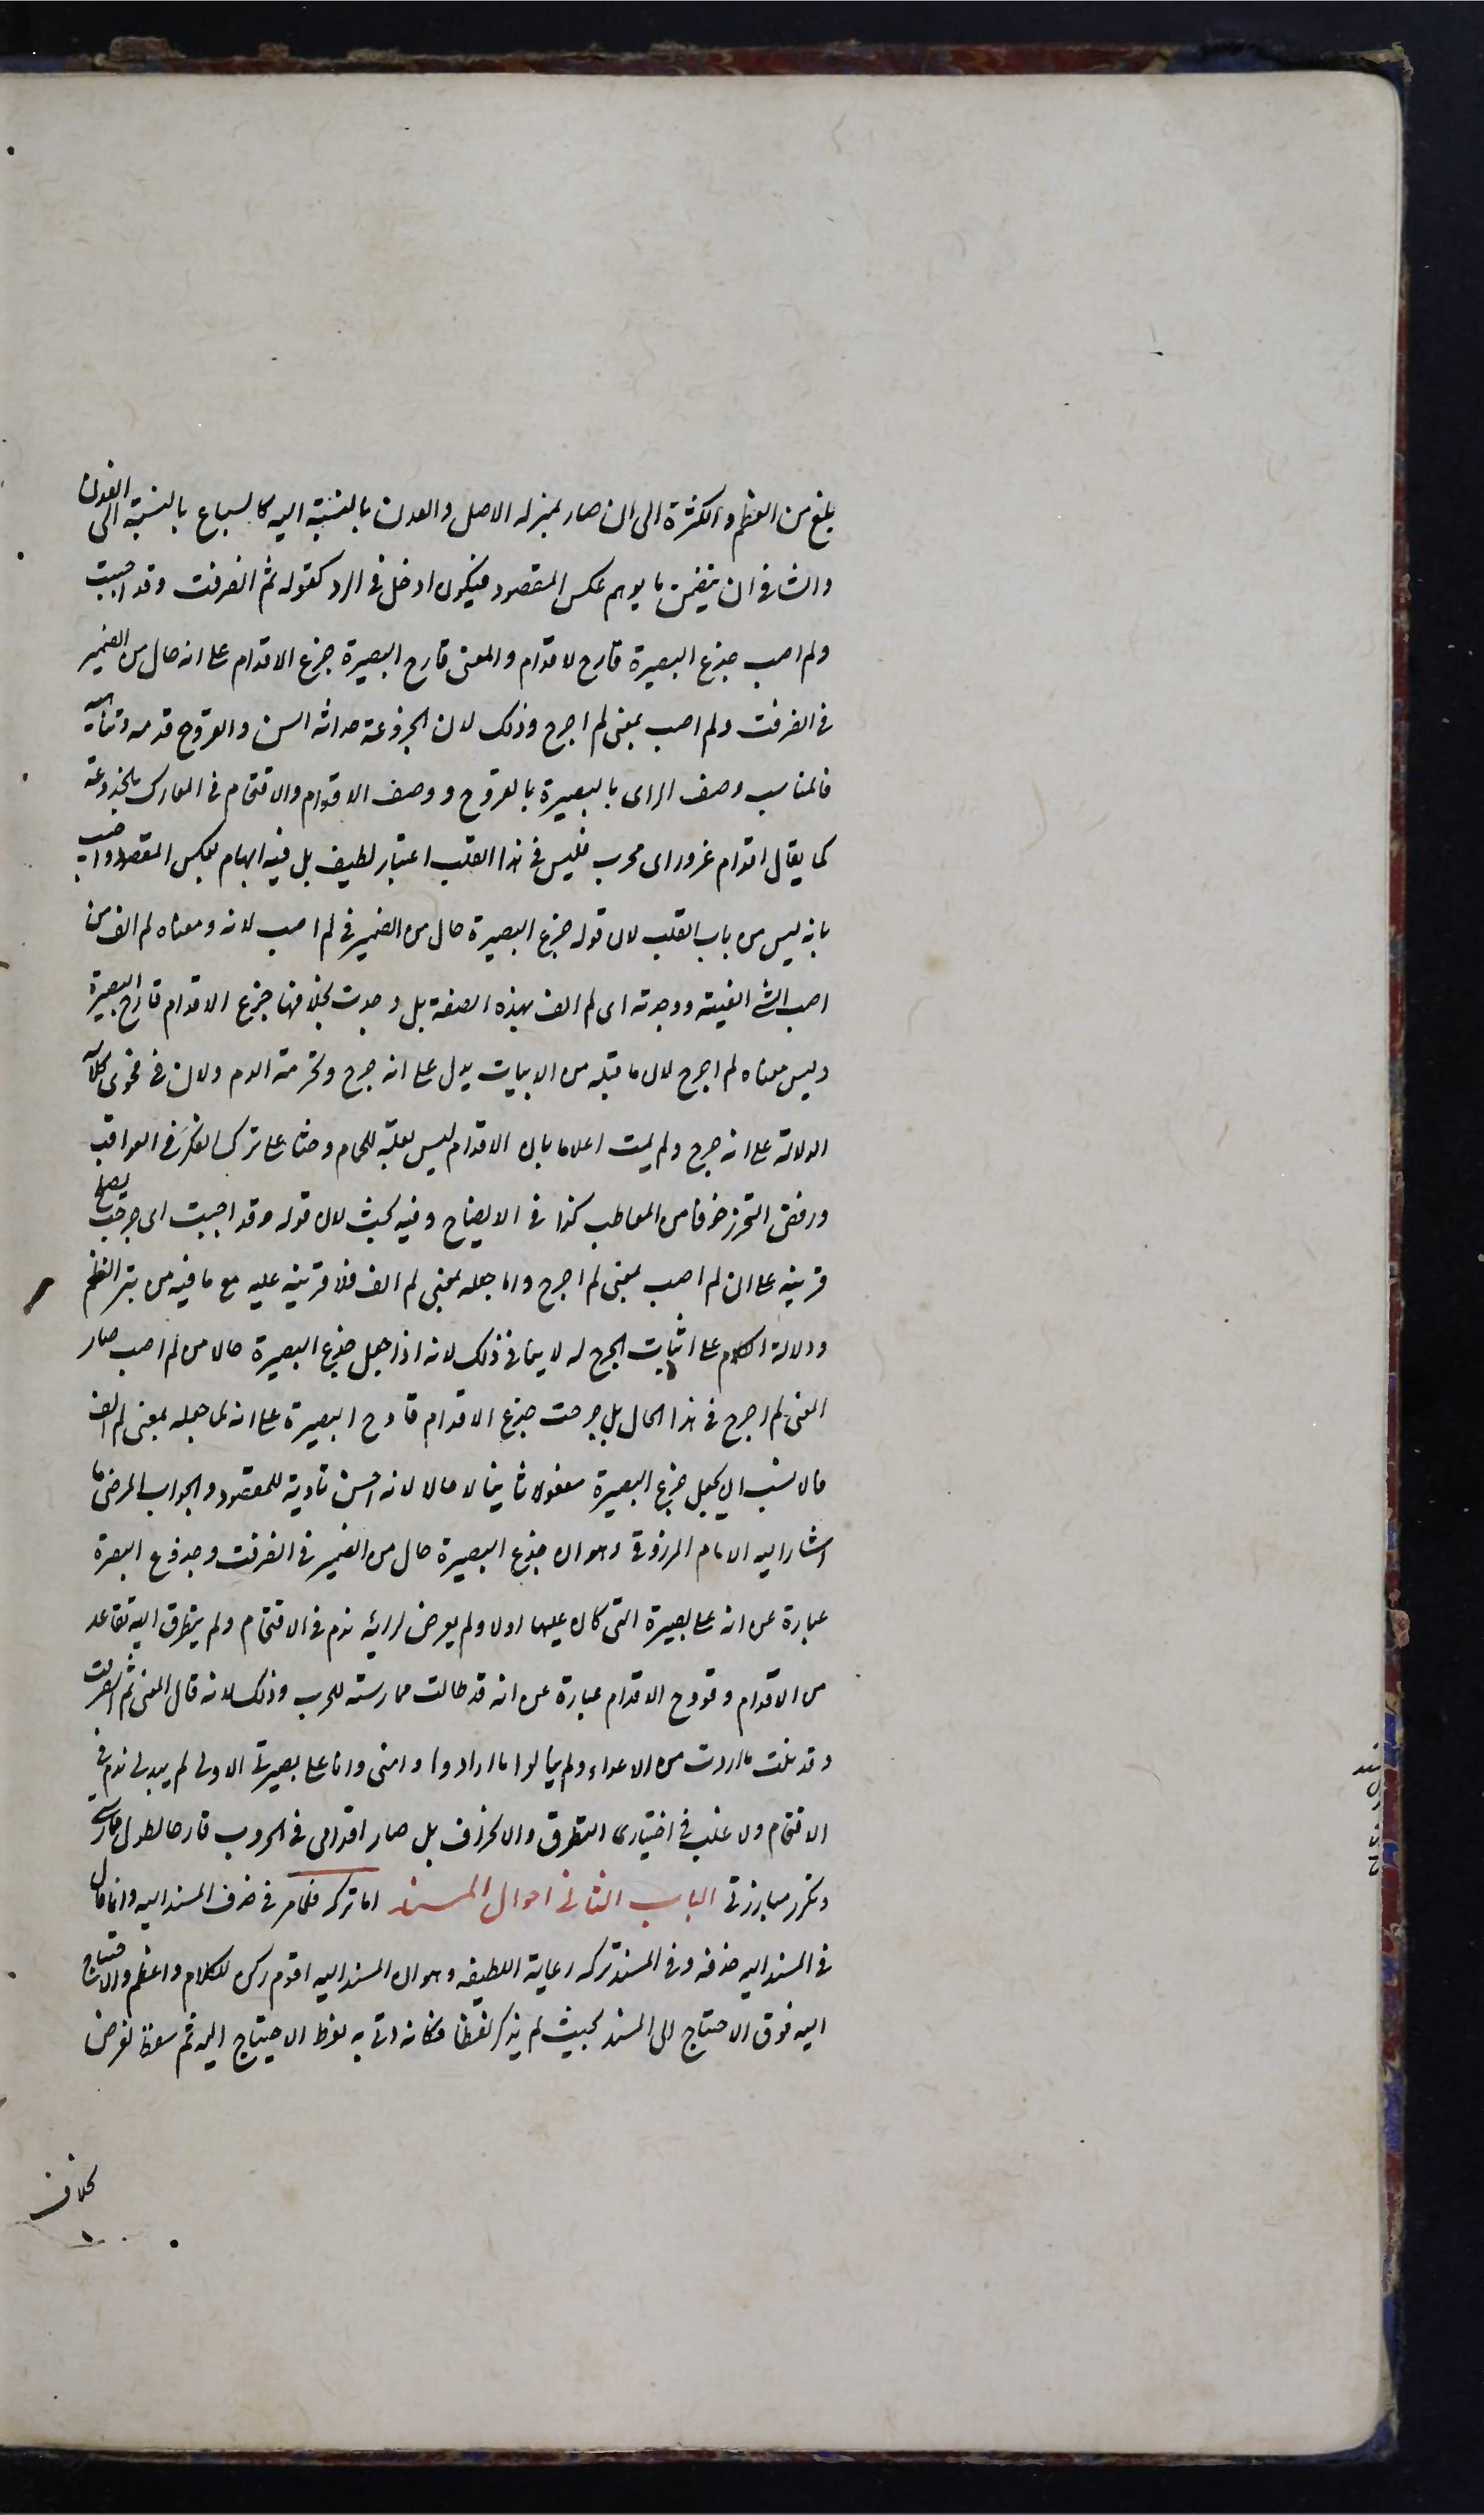 بلغ من العظم والكثرة الى ان صار بمنزلة الاصل والعدن بالنسبة اليه كالسياع بالنسبة الى الفدن
والثانى ان يتضمن ما يوهم عكس المقصود فيكون ادخل فى الرد كقوله ثم انصرفت وقد اصبت
ولم اصب جذع البصيرة قارح الاقدام والمعنى قارح البصيرة جذع الاقدام على انه حال من الضمير
فى انصرفت ولم اصب بمعنى لم اجرح وذلك لان الجذوعة حداثة السن والقروح قدمه وتناهيه
فالمناسب وصف الراى بالبصيرة بالقروح ووصف الاقدام والاقتحام فى المعارك بالجذوعة
كما يقال اقدام غر وراى مجرب فليس فى هذا القلب اعتبار لطيف بل فيه ايهام لعكس المقصود واجيب
بانه ليس من باب القلب لان قوله جذع البصيرة حال من الضمير فى لم اصب لانه ومعناه لم الف من
اصبت الشئ الفيته ووجدته اى لم الف بهذه الصفة بل وجدت بخلافها جذع الاقدام قارح البصيرة
وليس معناه لم اجرح لان ما قبله من الابيات يدل على انه جرح وتحرمته الدم ولان فى فحوى كلامه
الدلالة على انه جرح ولم يمت اعلاما بان الاقدام ليس بعلة للحمام وحثا على ترك الفكر فى العواقب
ورفض التحرز خوفا من المعاطب كذا فى الايضاح وفيه بحث لان قوله وقد اصبت اى جرحت يصلح
قرينة على ان لم اصب بمعنى لم اجرح واما جعله بمعنى لم الف فلا قرينة عليه مع ما فيه من بتر النظم
ودلالة الكلام على اثبات الجرح له لا ينافى ذلك لانه اذا جعل جذع البصيرة حالا من لم اصب صار
المعنى لم اجرح فى هذا الحال بل جرحت جذع الاقدام قارح البصيرة على انه لما جعله بمعنى لم الف
فالانسب ان يجعل جذع البصيرة مفعولا ثانيا لا حالا لانه احسن تادية للمقصود والجواب المرضى ما
اشار اليه الامام المرزوقى وهو ان جذع البصيرة حال من الضمير فى انصرفت وجذوع البصيرة
عبارة عن انه على بصيرة التى كان عليها اولا ولم يعرض لرايه ندم فى الاقتحام ولم يتطرق اليه تقاعد
من الاقدام وقروح الاقدام عبارة عن انه قد طالت ممارسته للحرب وذلك لانه قال المعنى ثم انصرفت
وقد نلت ما اردت من الاعداء ولم ينالوا ما ارادوا منى وانا على بصيرتى الاولى لم يبد لى ندم فى
الاقتحام ولا غلب فى اختيارى التطرق والانحراف بل صار اقدامى فى الحروب قارحا لطول ممارستى
وتكرر مبارزتى الباب الثانى احوال المسند اما تركه فلما مر فى حذف المسند اليه وانما قال
فى المسند اليه حذفه وفى المسند تركه رعاية للطيفه وهو ان المسند اليه اقوم ركن للكلام واعظم والاحتياج
اليه فوق الاحتياج الى المسند بحيث لم يذكر لفظا فكانه اتى به لفرط الاحتياج اليه ثم سقط لغرض
بخلاف